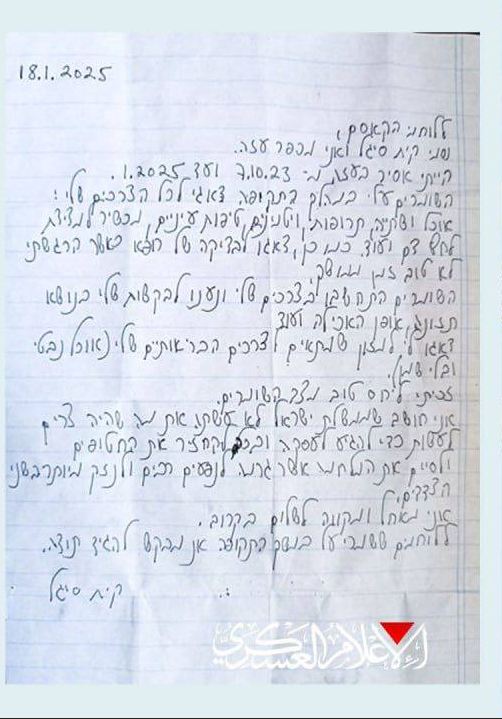 18.1.2025
ללוחמי הקאסם,
שמי קית סיגל ואני מכפר עזה.
הייתי אסיר בעזה מ- 7.10.23 ועד 1.2025.
השומרים עלי במהלך התקופה דאגו לכל הצרכים שלי:
אוכל ושתיה, תרופות, ויטמינים, טיפות עיניים, מכשיר למדידת
לחץ דם ועוד. כמו כן, דאגו לבדיקה של רופא כאשר הרגשתי
לא טוב זמן ממושך.
השומרים התחשבו בצרכים שלי ונענו לבקשות שלי בנושא
תזונה, אופן האכילה ועוד
דאגו לי למזון שמתאים לצרכים הבריאותיים שלי (אוכל נבטי
ובלי שמן).
זכיתי ליחס טוב מצד השומרים.
אני חושב שממשלת ישראל לא עשתה את מה שהיה צריך
לעשות כדי להגיע לעסקה ובכך להחזיר את החטופים
ולסיים את המלחמה אשר גרמה לנפגעים רבים ולנזק מיותר בשני
הצדדים.
אני מאחל ומקווה לשלום בקרוב.
ללוחמים ששמרו על במשך התקופה אני מבקש להגיד תודה.
קית סיגל
الإعلام العسكري